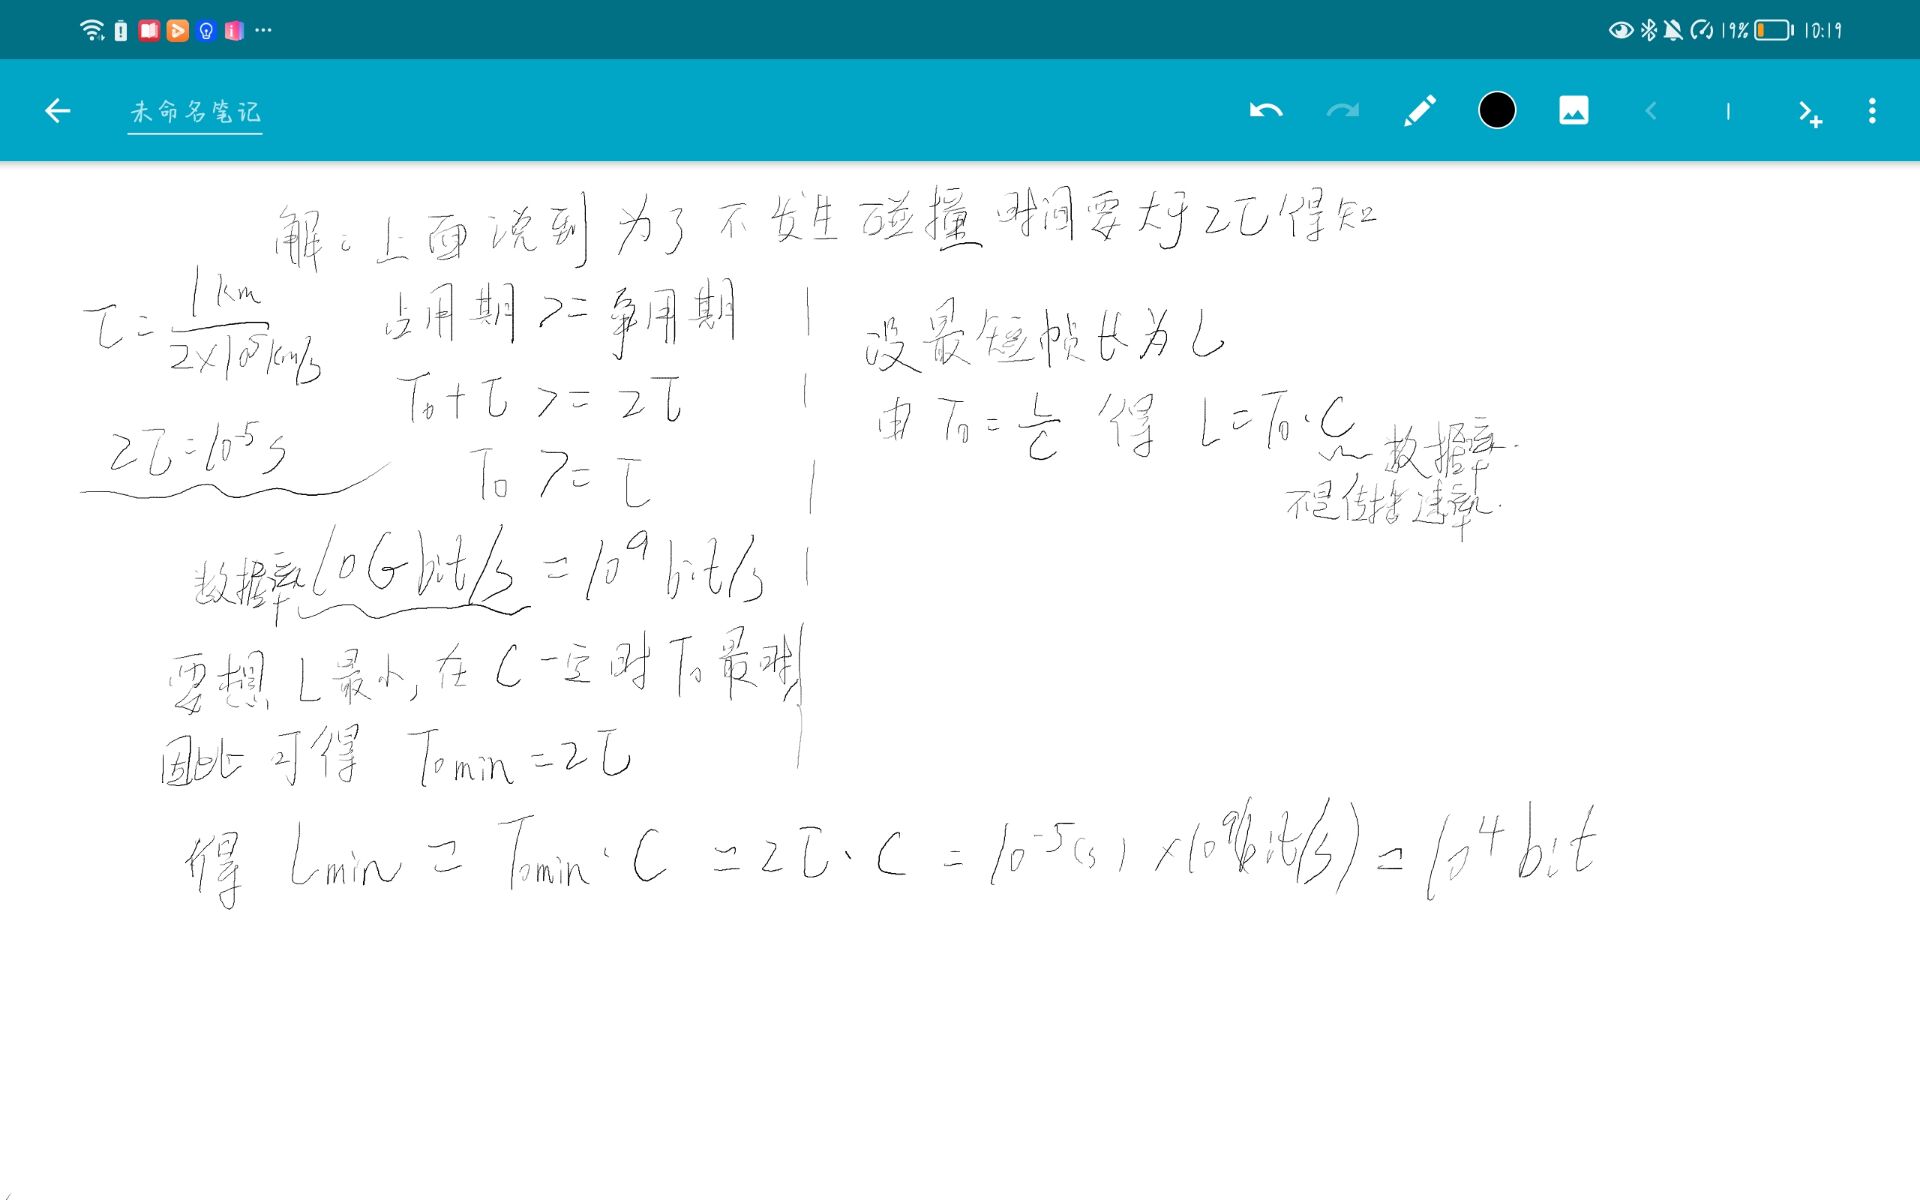 19% 10:19
未命名笔记
解：上面说到为了不发生碰撞时间要大于2τ得知
τ = 1km / 2×10⁵km/s
2τ=10⁻⁵s
占用期 >= 争用期
T₀+τ >= 2τ
T₀ >= τ
设最短帧长为L
由T₀=L/C 得 L=T₀·C
数据率.
不是传播速率.
数据率10Gbit/s = 10⁹bit/s
要想L最小,在C一定时T₀最
因此可得 T₀min=2τ
得 Lmin = T₀min·C = 2τ·C = 10⁻⁵(s)×(10⁹bit/s) = 10⁴bit